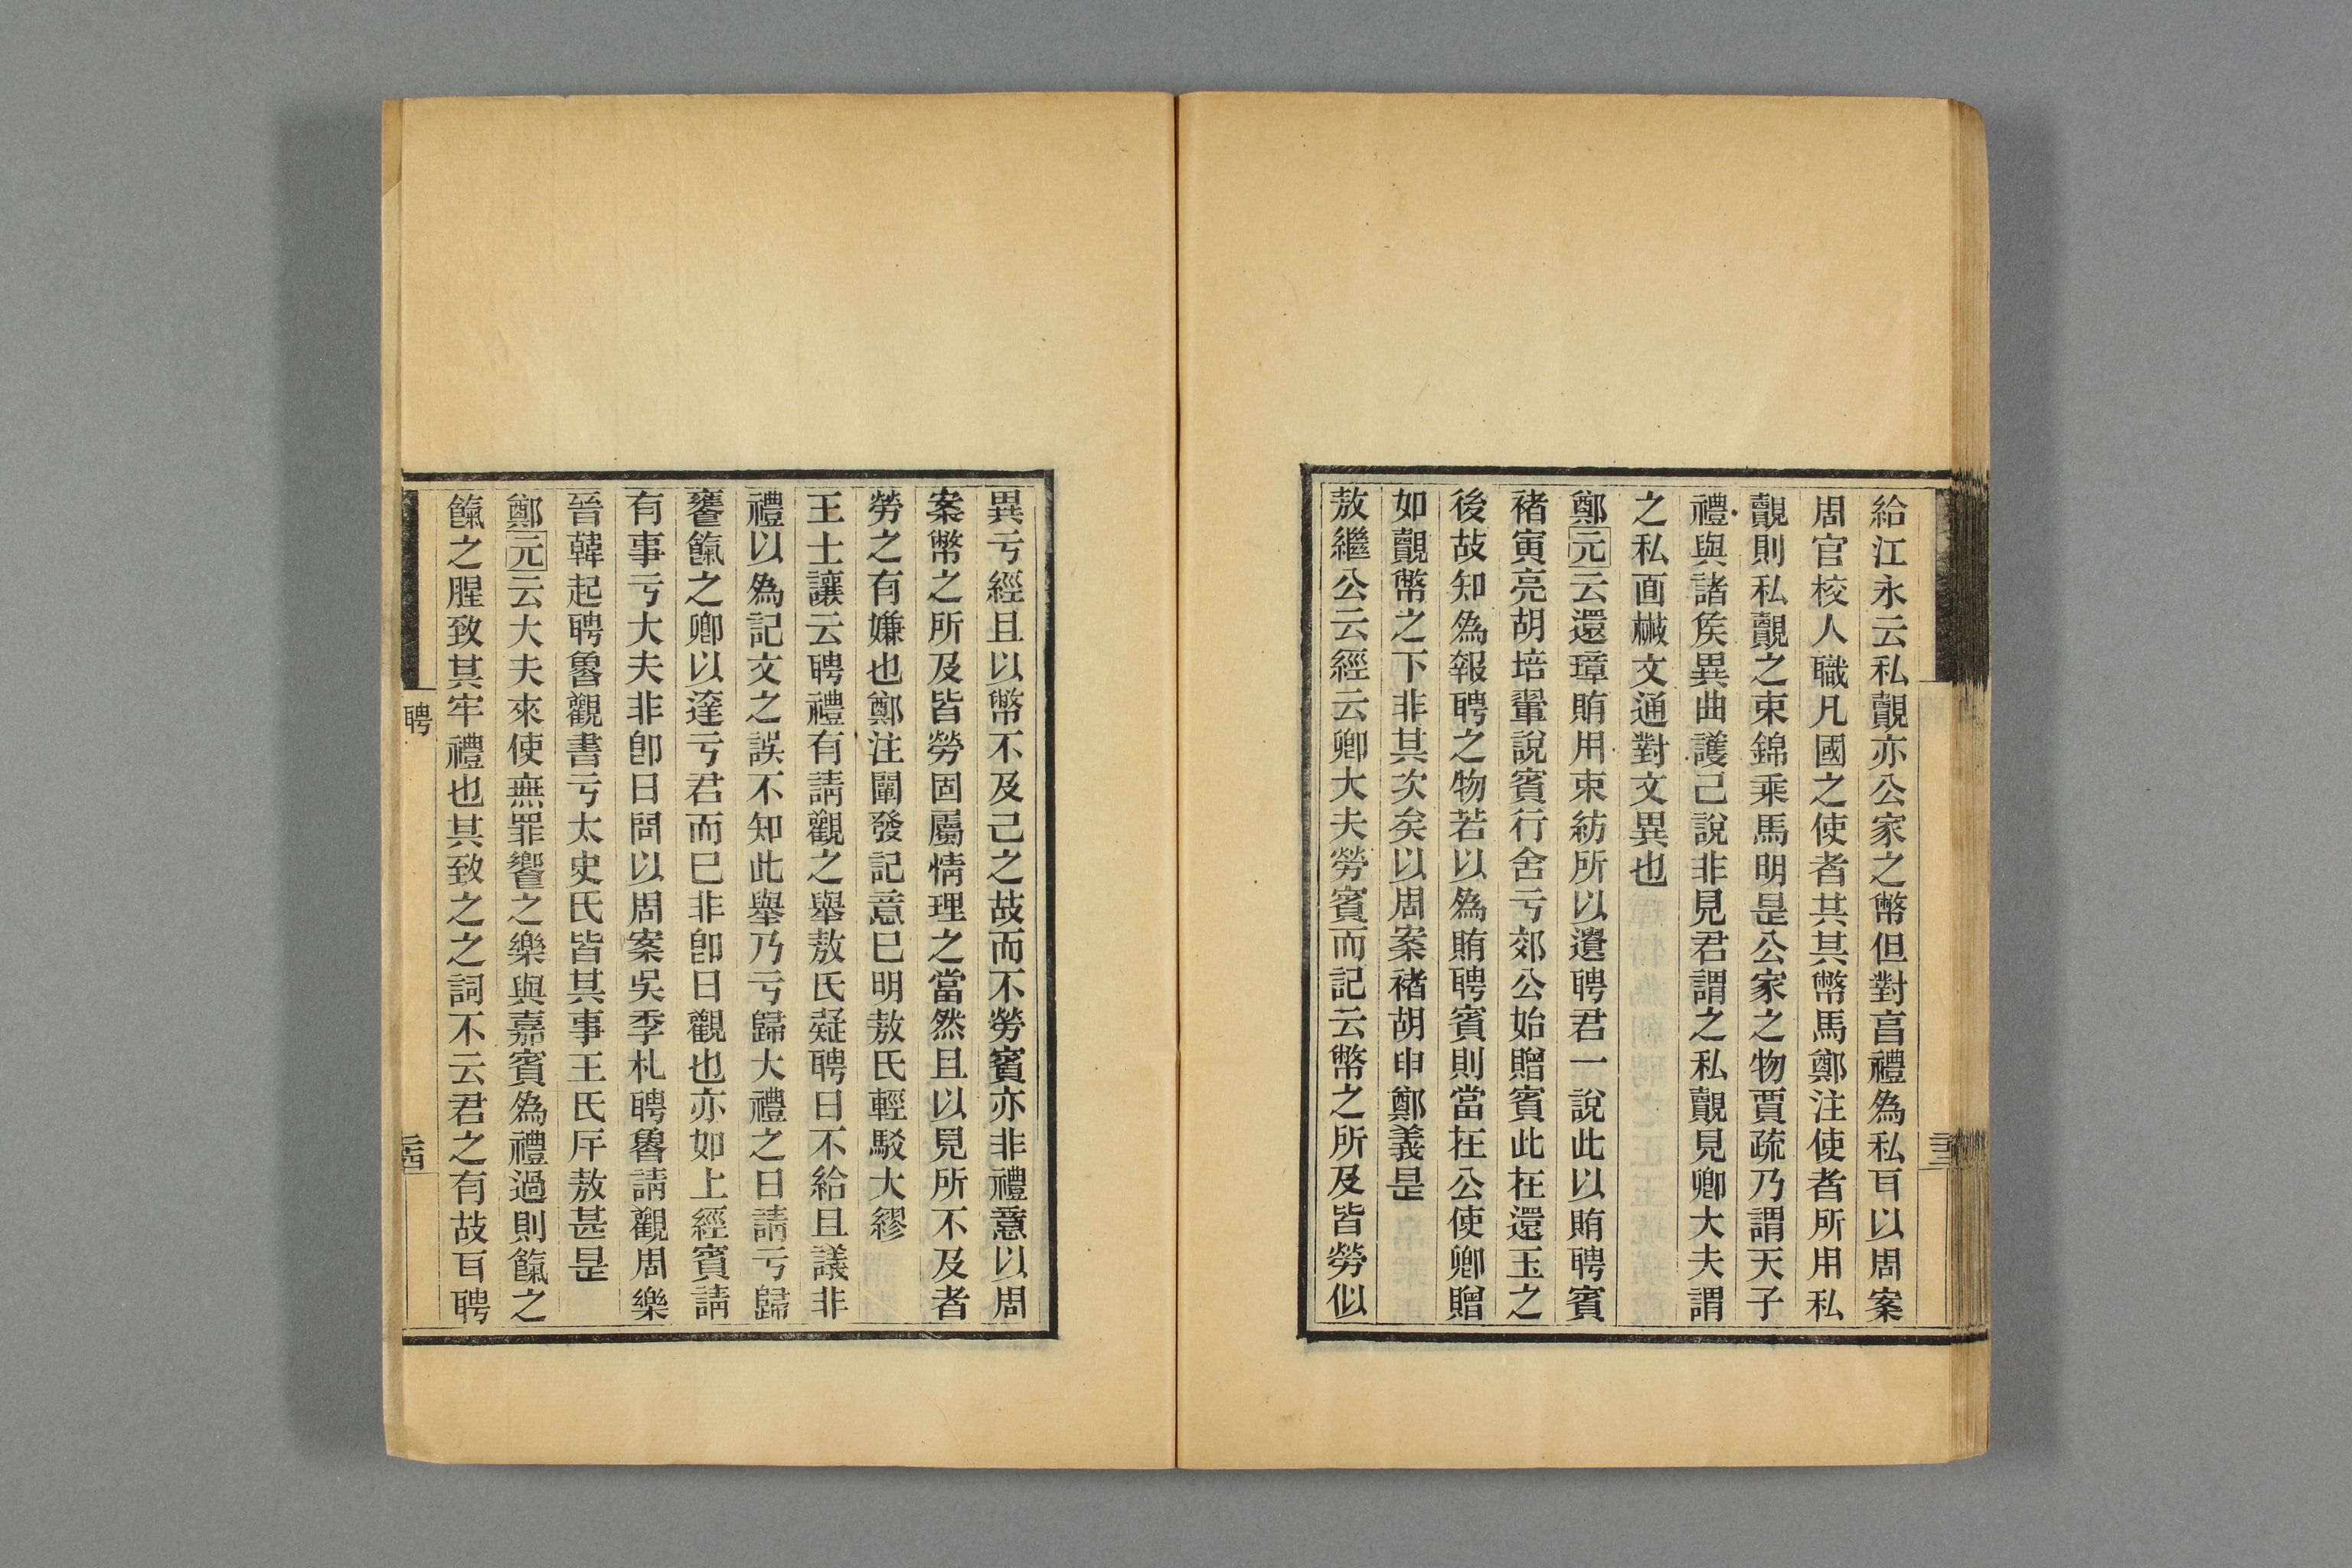 給江永云私覿亦公家之幣但對亯禮為私耳以周案
周官校人職凡國之使者共其幣馬鄭注使者所用私
覿則私覿之束錦乘馬明是公家之物賈疏乃謂天子
禮與諸矦異曲護己說非見君謂之私覿見卿大夫謂
之私面楲文通對文異也
鄭元云還璋賄用束紡所以遺聘君一說此以賄聘賓
褚寅亮胡培翬說賓行舍亏郊公始贈賓此在還玉之
後故知為報聘之物若以為賄聘賓則當在公使卿贈
如覿幣之下非其次矣以周案褚胡申鄭義是
敖繼公云經云卿大夫勞賓而記云幣之所及皆勞似
異亏經且以幣不及己之故而不勞賓亦非禮意以周
案幣之所及皆勞固屬情理之當然且以見所不及者
勞之有嫌也鄭注闡發記意已明敖氏輕駁大繆
王士讓云聘禮有請觀之舉敖氏疑聘日不給且議非
禮以為記文之誤不知此舉乃亏歸大禮之日請亏歸
饔餼之卿以達亏君而已非卽日觀也亦如上經賓請
有事亏大夫非卽日問以周案吳季札聘魯請觀周樂
晉韓起聘魯觀書亏太史氏皆其事王氏斥敖甚是
鄭元云大夫來使無罪饗之樂與嘉賓為禮過則餼之
餼之腥致其牢禮也其致之之詞不云君之有故耳聘
聘